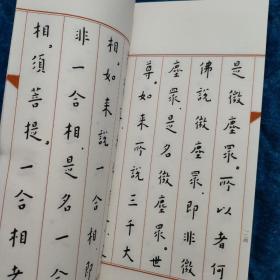 是微塵眾所以者何
佛說微塵眾即非微
塵眾是名微塵眾。世
尊。如来所說三千大
相。如来說一合相即
非一合相是名一合
相。須菩提。一合相者